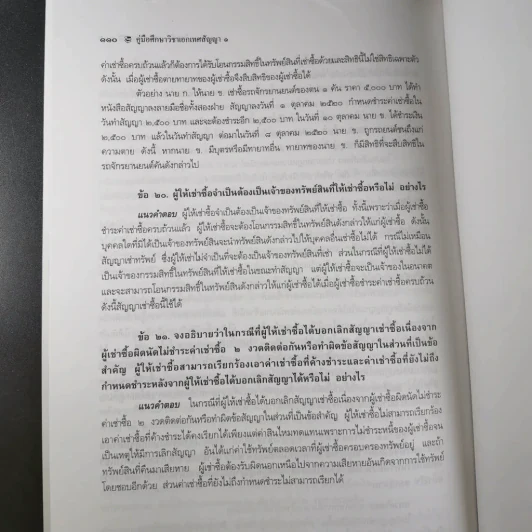 ๑๑๐ คู่มือศึกษาวิชาเอกเทศสัญญา ๑
ค่าเช่าซื้อครบถ้วนแล้วก็ต้องการได้รับโอนกรรมสิทธิ์ในทรัพย์สินที่เช่าซื้อด้วยและสิทธินี้ไม่ใช่สิทธิเฉพาะตัว
ดังนั้น เมื่อผู้เช่าซื้อตายทายาทของผู้เช่าซื้อจึงสืบสิทธิของผู้เช่าซื้อได้
ตัวอย่าง นาย ก. ให้นาย ข. เช่าซื้อรถจักรยานยนต์ของตน ๑ คัน ราคา ๕,๐๐๐ บาท ได้ทำ
หนังสือสัญญาลงลายมือชื่อทั้งสองฝ่าย สัญญาลงวันที่ ๑ ตุลาคม ๒๕๒๐ กำหนดชำระค่าเช่าซื้อใน
วันทำสัญญา ๒,๕๐๐ บาท และจะต้องชำระอีก ๒,๕๐๐ บาท ในวันที่ ๑๐ ตุลาคม นาย ข. ได้ชำระเงิน
๒,๕๐๐ บาท แล้วในวันทำสัญญา ต่อมาในวันที่ ๘ ตุลาคม ๒๕๒๐ นาย ข. ถูกรถยนต์ชนถึงแก่
ความตาย ดังนี้ หากนาย ข. มีบุตรหรือมีทายาทอื่น ทายาทของนาย ข. ก็มีสิทธิที่จะสืบสิทธิใน
รถจักรยานยนต์คันดังกล่าวไป
ข้อ ๒๐. ผู้ให้เช่าซื้อจำเป็นต้องเป็นเจ้าของทรัพย์สินที่ให้เช่าซื้อหรือไม่ อย่างไร
แนวคำตอบ ผู้ให้เช่าซื้อจำเป็นต้องเป็นเจ้าของทรัพย์สินที่ให้เช่าซื้อ ทั้งนี้เพราะว่าเมื่อผู้เช่าซื้อ
ชำระค่าเช่าซื้อครบถ้วนแล้ว ผู้ให้เช่าซื้อจะต้องโอนกรรมสิทธิ์ในทรัพย์สินดังกล่าวให้แก่ผู้เช่าซื้อ ดังนั้น
บุคคลใดที่มิได้เป็นเจ้าของทรัพย์สินจะนำทรัพย์สินดังกล่าวไปให้บุคคลอื่นเช่าซื้อไม่ได้ กรณีไม่เหมือน
สัญญาเช่าทรัพย์ ซึ่งผู้ให้เช่าไม่จำเป็นที่จะต้องเป็นเจ้าของทรัพย์สินที่เช่า ส่วนในกรณีที่ผู้ให้เช่าซื้อไม่ได้
เป็นเจ้าของกรรมสิทธิ์ในทรัพย์สินที่ให้เช่าซื้อในขณะทำสัญญา แต่ผู้ให้เช่าซื้อจะเป็นเจ้าของในอนาคต
และจะสามารถโอนกรรมสิทธิ์ในทรัพย์สินดังกล่าวให้แก่ผู้เช่าซื้อได้เมื่อผู้เช่าซื้อชำระค่าเช่าซื้อครบถ้วน
ดังนี้สัญญาเช่าซื้อนี้ใช้ได้
ข้อ ๒๑. จงอธิบายว่าในกรณีที่ผู้ให้เช่าซื้อได้บอกเลิกสัญญาเช่าซื้อเนื่องจาก
ผู้เช่าซื้อผิดนัดไม่ชำระค่าเช่าซื้อ ๒ งวดติดต่อกันหรือทำผิดข้อสัญญาในส่วนที่เป็นข้อ
สำคัญ ผู้ให้เช่าซื้อสามารถเรียกร้องเอาค่าเช่าซื้อที่ค้างชำระและค่าเช่าซื้อที่ยังไม่ถึง
กำหนดชำระหลังจากผู้ให้เช่าซื้อได้บอกเลิกสัญญาได้หรือไม่ อย่างไร
แนวคำตอบ ในกรณีที่ผู้ให้เช่าซื้อได้บอกเลิกสัญญาเช่าซื้อเนื่องจากผู้เช่าซื้อผิดนัดไม่ชำระค่า
เช่าซื้อ ๒ งวดติดต่อกันหรือทำผิดข้อสัญญาในส่วนที่เป็นข้อสำคัญ ผู้ให้เช่าซื้อไม่สามารถเรียกร้อง
เอาค่าเช่าซื้อที่ค้างชำระได้คงเรียกได้เพียงแต่ค่าสินไหมทดแทนเพราะการไม่ชำระหนี้ของผู้เช่าซื้อจน
เป็นเหตุให้มีการเลิกสัญญา อันได้แก่ค่าใช้ทรัพย์ตลอดเวลาที่ผู้เช่าซื้อครอบครองทรัพย์อยู่ และถ้า
ทรัพย์สินที่คืนมาเสียหาย ผู้เช่าซื้อต้องรับผิดนอกเหนือไปจากความเสียหายอันเกิดจากการใช้ทรัพย์
โดยชอบอีกด้วย ส่วนค่าเช่าซื้อที่ยังไม่ถึงกำหนดชำระไม่สามารถเรียกได้